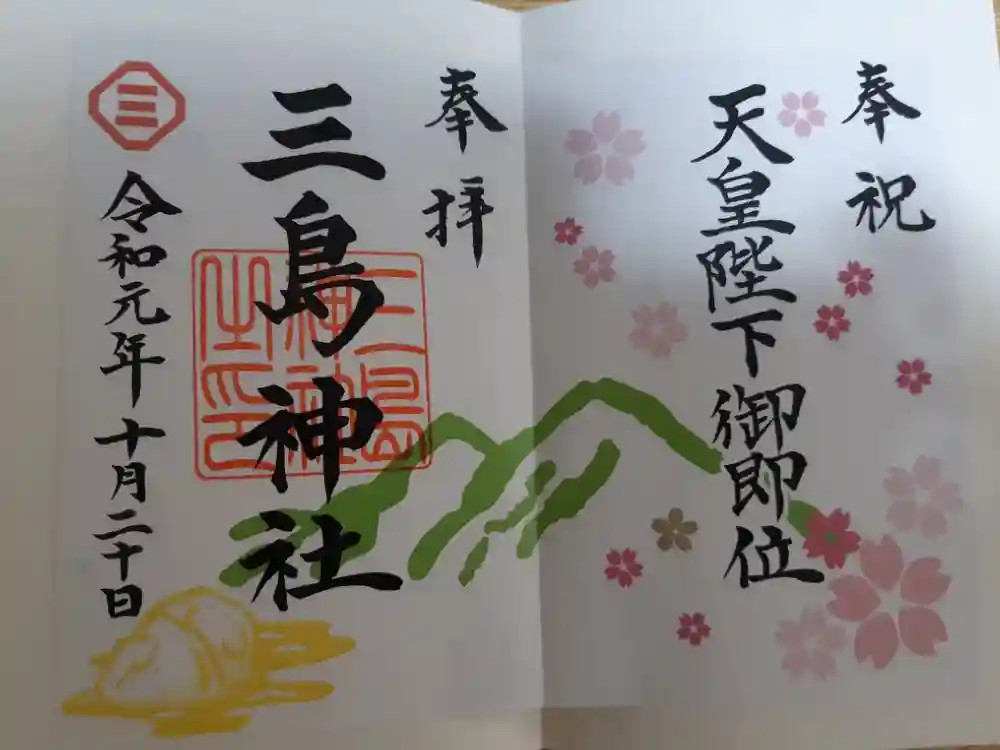 奉祝
天皇陛下御即位
奉拝
三島神社
三島神社之印
三
令和元年十月二十日